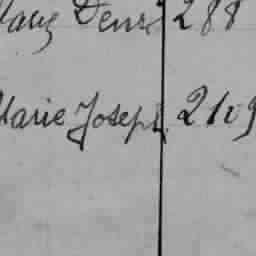 Denise 288
Marie Joseph 2109